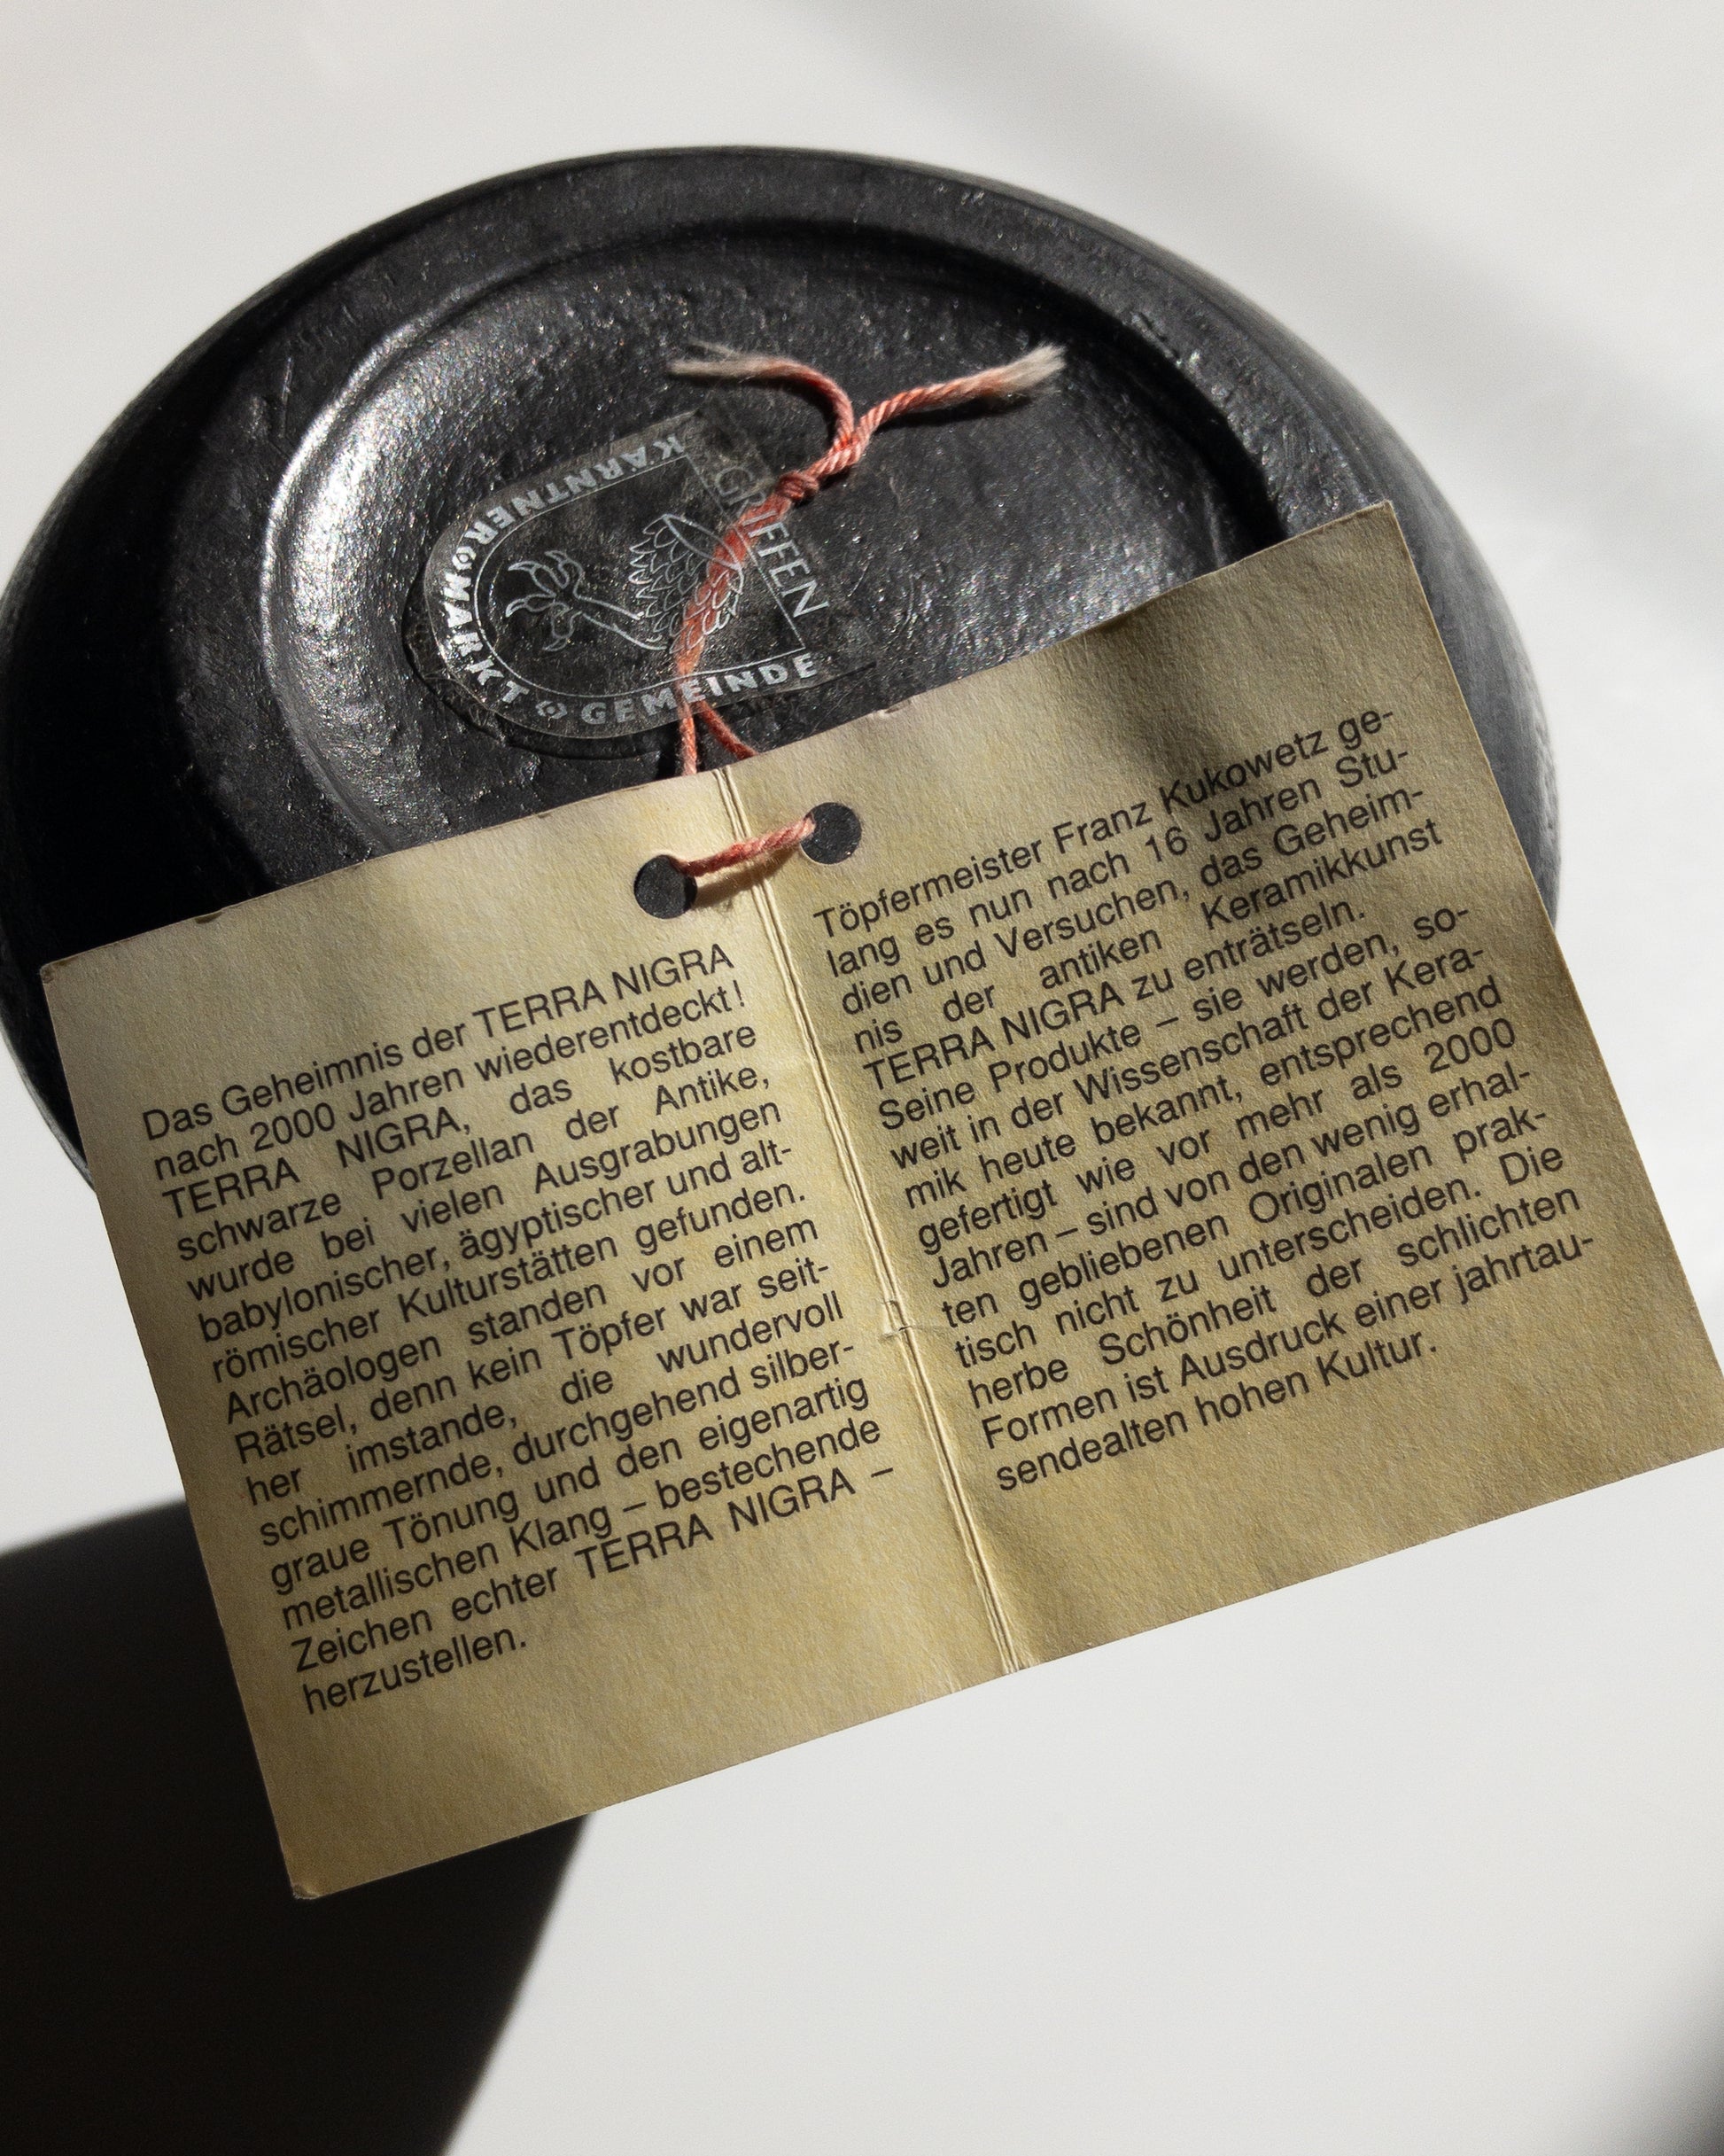 GRIFFEN
KÄRNTNER MARKT GEMEINDE
Das Geheimnis der TERRA NIGRA
nach 2000 Jahren wiederentdeckt!
TERRA NIGRA, das kostbare
schwarze Porzellan der Antike,
wurde bei vielen Ausgrabungen
babylonischer, ägyptischer und alt-
römischer Kulturstätten gefunden.
Archäologen standen vor einem
Rätsel, denn kein Töpfer war seit-
her imstande, die wundervoll
schimmernde, durchgehend silber-
graue Tönung und den eigenartig
metallischen Klang – bestechende
Zeichen echter TERRA NIGRA –
herzustellen.
Töpfermeister Franz Kukowetz ge-
lang es nun nach 16 Jahren Stu-
dien und Versuchen, das Geheim-
nis der antiken Keramikkunst
TERRA NIGRA zu enträtseln.
Seine Produkte – sie werden, so-
weit in der Wissenschaft der Kera-
mik heute bekannt, entsprechend
gefertigt wie vor mehr als 2000
Jahren – sind von den wenig erhal-
ten gebliebenen Originalen prak-
tisch nicht zu unterscheiden. Die
herbe Schönheit der schlichten
Formen ist Ausdruck einer jahrtau-
sendealten hohen Kultur.